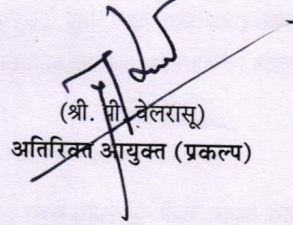 (श्री. पी. वेलरासू)
अतिरिक्त आयुक्त (प्रकल्प)